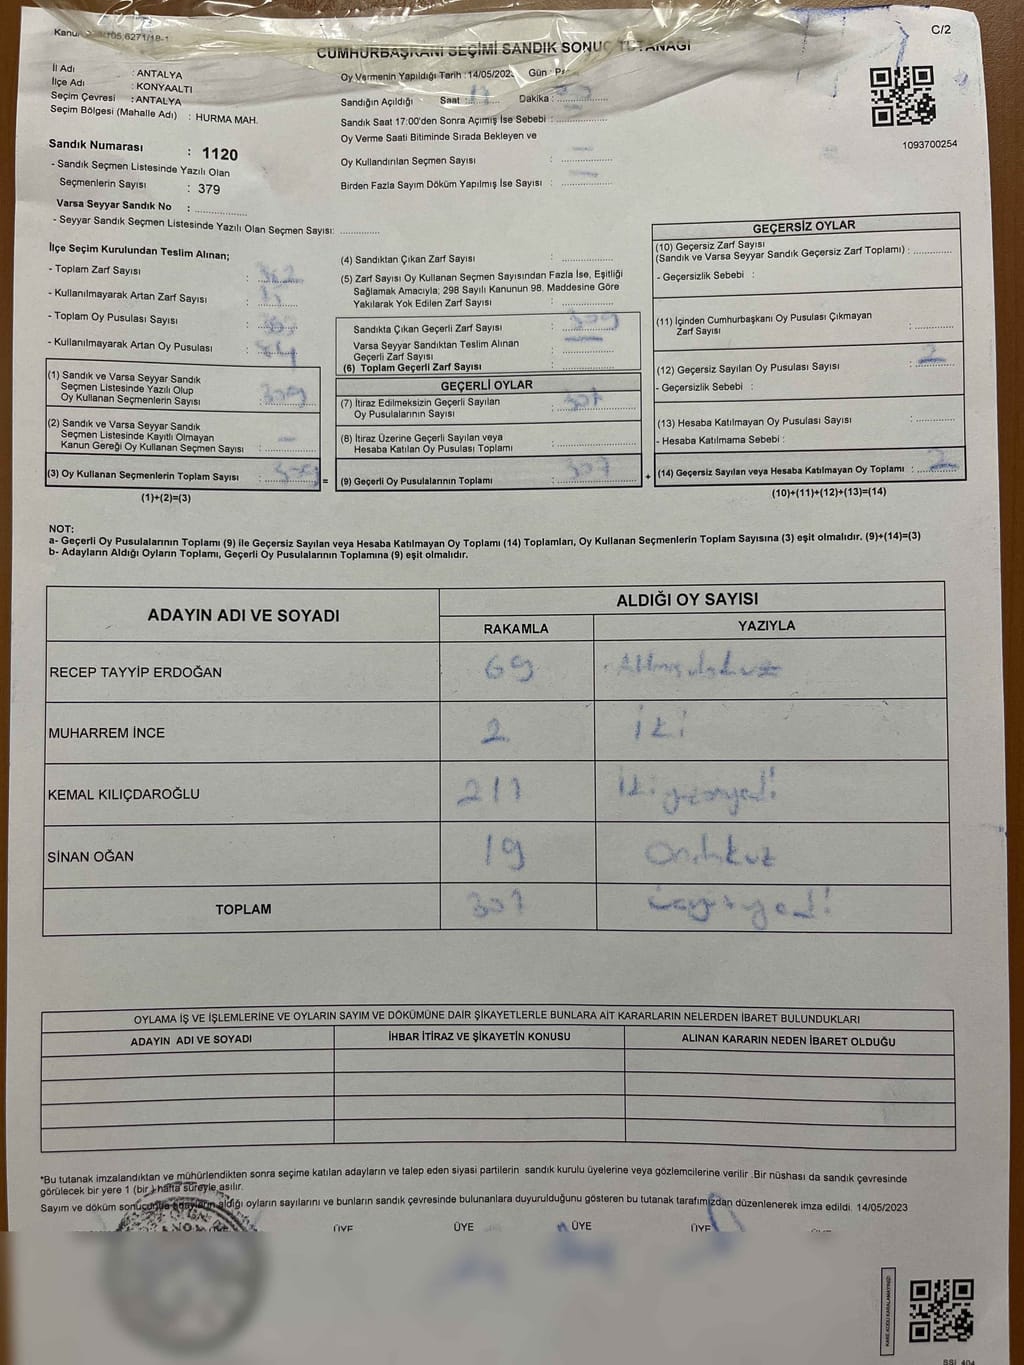 C/2
CUMHURBAŞKANI SEÇİMİ SANDIK SONUÇ TUTANAĞI
İl Adı : ANTALYA
İlçe Adı : KONYAALTI
Seçim Çevresi : ANTALYA
Seçim Bölgesi (Mahalle Adı) : HURMA MAH.
Oy Vermenin Yapıldığı Tarih : 14/05/202 Gün :
Sandığın Açıldığı Saat : 17 Dakika :
Sandık Saat 17:00'den Sonra Açımış İse Sebebi :
Oy Verme Saati Bitiminde Sırada Bekleyen ve
Oy Kullandırılan Seçmen Sayısı :
Birden Fazla Sayım Döküm Yapılmış İse Sayısı :
1093700254
Sandık Numarası : 1120
- Sandık Seçmen Listesinde Yazılı Olan
Seçmenlerin Sayısı : 379
Varsa Seyyar Sandık No :
- Seyyar Sandık Seçmen Listesinde Yazılı Olan Seçmen Sayısı:
İlçe Seçim Kurulundan Teslim Alınan;
- Toplam Zarf Sayısı :
- Kullanılmayarak Artan Zarf Sayısı :
- Toplam Oy Pusulası Sayısı :
- Kullanılmayarak Artan Oy Pusulası :
(1) Sandık ve Varsa Seyyar Sandık
Seçmen Listesinde Yazılı Olup
Oy Kullanan Seçmenlerin Sayısı : 309
(2) Sandık ve Varsa Seyyar Sandık
Seçmen Listesinde Kayıtlı Olmayan
Kanun Gereği Oy Kullanan Seçmen Sayısı : –
(3) Oy Kullanan Seçmenlerin Toplam Sayısı : 309
(1)+(2)=(3)
=
(4) Sandıktan Çıkan Zarf Sayısı :
(5) Zarf Sayısı Oy Kullanan Seçmen Sayısından Fazla İse, Eşitliği
Sağlamak Amacıyla; 298 Sayılı Kanunun 98. Maddesine Göre
Yakılarak Yok Edilen Zarf Sayısı :
Sandıkta Çıkan Geçerli Zarf Sayısı : 309
Varsa Seyyar Sandıktan Teslim Alınan
Geçerli Zarf Sayısı :
(6) Toplam Geçerli Zarf Sayısı :
GEÇERLİ OYLAR
(7) İtiraz Edilmeksizin Geçerli Sayılan
Oy Pusulalarının Sayısı : 307
(8) İtiraz Üzerine Geçerli Sayılan veya
Hesaba Katılan Oy Pusulası Toplamı :
(9) Geçerli Oy Pusulalarının Toplamı : 307
+
GEÇERSİZ OYLAR
(10) Geçersiz Zarf Sayısı
(Sandık ve Varsa Seyyar Sandık Geçersiz Zarf Toplamı) :
- Geçersizlik Sebebi :
(11) İçinden Cumhurbaşkanı Oy Pusulası Çıkmayan
Zarf Sayısı :
(12) Geçersiz Sayılan Oy Pusulası Sayısı : 2
- Geçersizlik Sebebi :
(13) Hesaba Katılmayan Oy Pusulası Sayısı :
- Hesaba Katılmama Sebebi :
(14) Geçersiz Sayılan veya Hesaba Katılmayan Oy Toplamı : 2
(10)+(11)+(12)+(13)=(14)
NOT:
a- Geçerli Oy Pusulalarının Toplamı (9) ile Geçersiz Sayılan veya Hesaba Katılmayan Oy Toplamı (14) Toplamları, Oy Kullanan Seçmenlerin Toplam Sayısına (3) eşit olmalıdır. (9)+(14)=(3)
b- Adayların Aldığı Oyların Toplamı, Geçerli Oy Pusulalarının Toplamına (9) eşit olmalıdır.
ADAYIN ADI VE SOYADI ALDIĞI OY SAYISI
RAKAMLA YAZIYLA
RECEP TAYYİP ERDOĞAN 69 Altmışdokuz
MUHARREM İNCE 2 iki
KEMAL KILIÇDAROĞLU 217 iki yüzonyedi
SİNAN OĞAN 19 Ondokuz
TOPLAM 307 üçyüzyedi
OYLAMA İŞ VE İŞLEMLERİNE VE OYLARIN SAYIM VE DÖKÜMÜNE DAİR ŞİKAYETLERLE BUNLARA AİT KARARLARIN NELERDEN İBARET BULUNDUKLARI
ADAYIN ADI VE SOYADI İHBAR İTİRAZ VE ŞİKAYETİN KONUSU ALINAN KARARIN NEDEN İBARET OLDUĞU
*Bu tutanak imzalandıktan ve mühürlendikten sonra seçime katılan adayların ve talep eden siyasi partilerin sandık kurulu üyelerine veya gözlemcilerine verilir .Bir nüshası da sandık çevresinde
görülecek bir yere 1 (bir ) hafta süreyle asılır.
Sayım ve döküm sonucunda adayların aldığı oyların sayılarını ve bunların sandık çevresinde bulunanlara duyurulduğunu gösteren bu tutanak tarafımızdan düzenlenerek imza edildi. 14/05/2023
ÜYE ÜYE ÜYE ÜYE